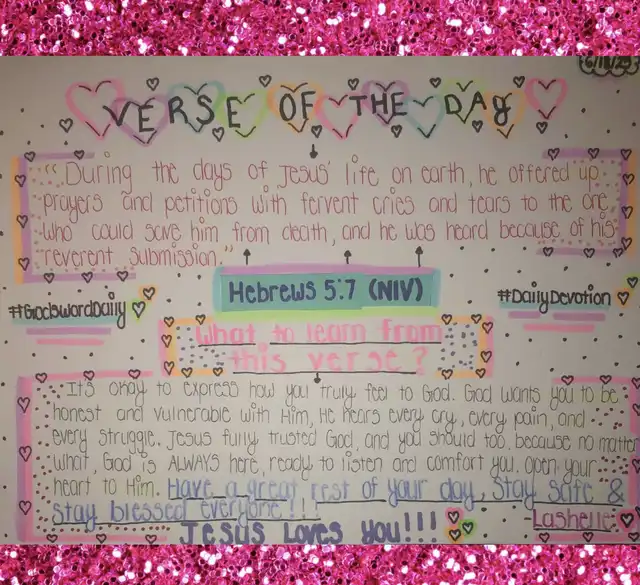 6/18/25
VERSE OF THE DAY
"During the days of Jesus' life on earth, he offered up
prayers and petitions with fervent cries and tears to the one
who could save him from death, and he was heard because of his
reverent submission."
Hebrews 5:7 (NIV)
#GodswordDaily
#DailyDevotion
What to learn from
this verse?
It's okay to express how you truly feel to God. God wants you to be
honest and vulnerable with Him, He hears every cry, every pain, and
every struggle. Jesus fully trusted God, and you should too, because no matter
what, God is ALWAYS here, ready to listen and comfort you. Open your
heart to Him. Have a great rest of your day, Stay safe &
stay blessed everyone!!!
-Lashelle
Jesus Loves you!!!